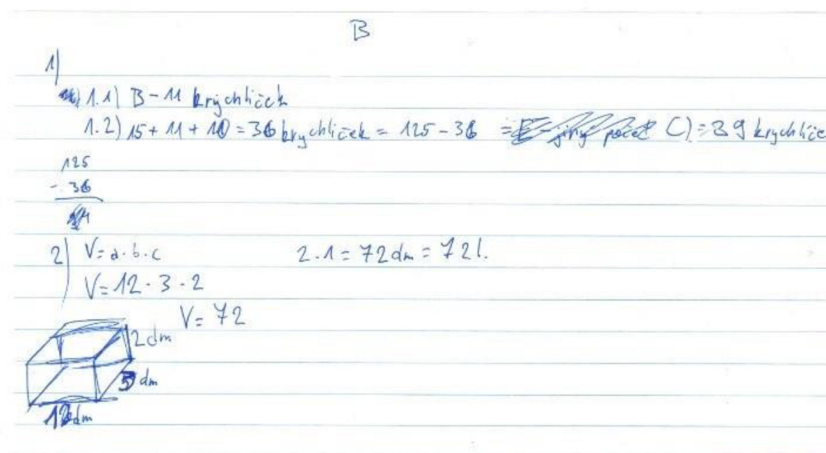 B
1)
1.1) B - 11 krychliček
1.2) 15 + 11 + 10 = 36 krychliček = 125 - 36 = jiný počet C) = 89 krychliče
125
- 36
2) V = a · b · c
2.1 = 72 dm = 72 l.
V = 12 · 3 · 2
V = 72
2 dm
3 dm
12 dm